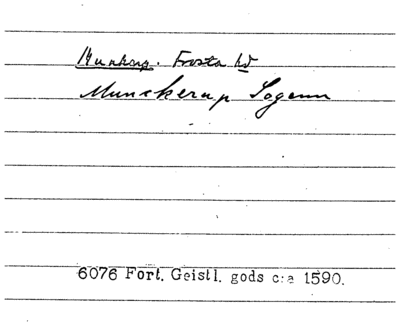 Munkarp. Frosta hd
Munckerup Sogenn
6076 Fort. Geistl. gods c:a 1590.